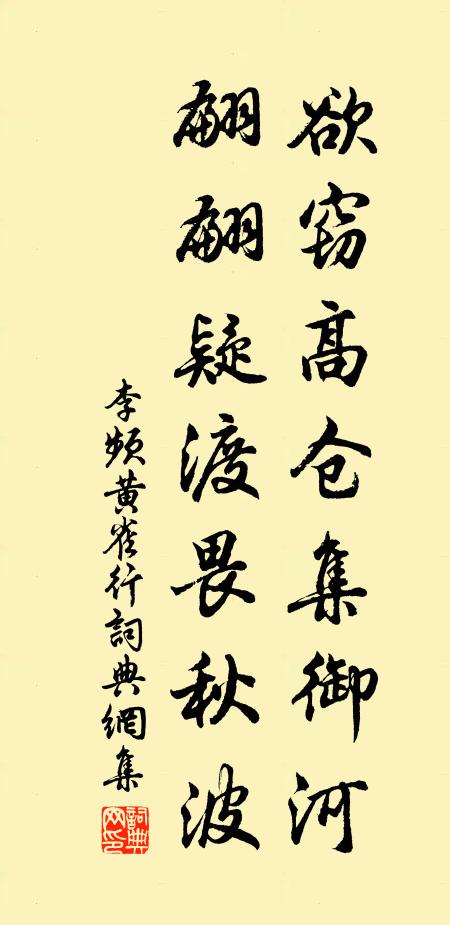 欲窃高仓集御河
翩翩疑渡畏秋波
李频黄雀行詞典網集
詞典网印